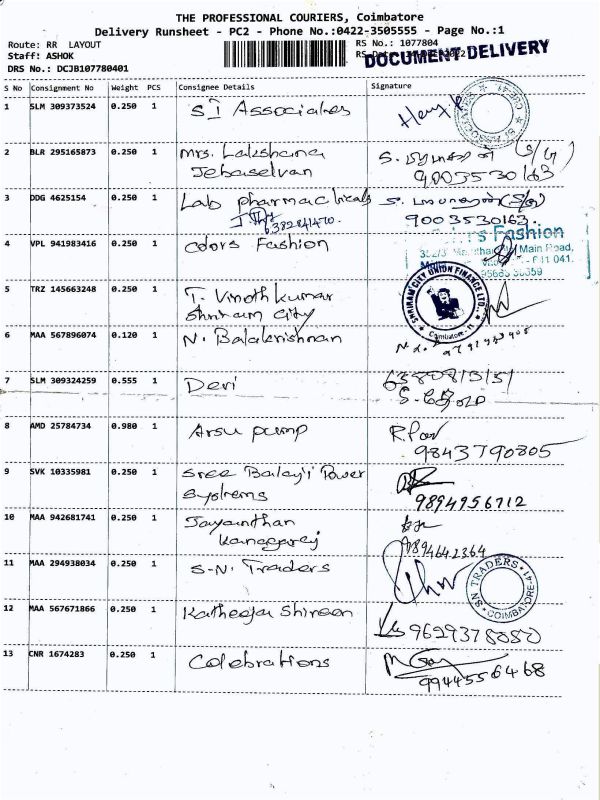 THE PROFESSIONAL COURIERS, Coimbatore
Delivery Runsheet - PC2 - Phone No.:0422-3505555 - Page No.:1
Route: RR LAYOUT RS No.: 1077804
Staff: ASHOK
DOCUMENT DELIVERY
DRS No.: DCJB107780401
S No Consignment No Weight PCS Consignee Details Signature
1 SLM 309373524 0.250 1 SI Associates
2 BLR 295165873 0.250 1 Mrs. Lakshana
Jebaselvan
9003530163
3 DDG 4625154 0.250 1 Lab pharmaclicals
6382841470.
9003530163.
4 VPL 941983416 0.250 1 Colors Fashion
Fashion
Main Road,
5 TRZ 145663248 0.250 1 T. Vinoth kumar
Shriram City
SHRIRAM CITY UNION FINANCE LTD.,
Coimbatore
6 MAA 567896074 0.120 1 N. Balakrishnan
7 SLM 309324259 0.555 1 Devi
8 AMD 25784734 0.980 1 Arsu pump
9843790805
9 SVK 10335981 0.250 1 Sree Balaji Power
Systems
9894956712
10 MAA 942681741 0.250 1 Jayanthan
Kanagaraj
9894642364
11 MAA 294938034 0.250 1 S.N. Traders
SN TRADERS
COIMBATORE-41
12 MAA 567671866 0.250 1 Katheeja Shireen
9629378080
13 CNR 1674283 0.250 1 Celebrations
9944556468